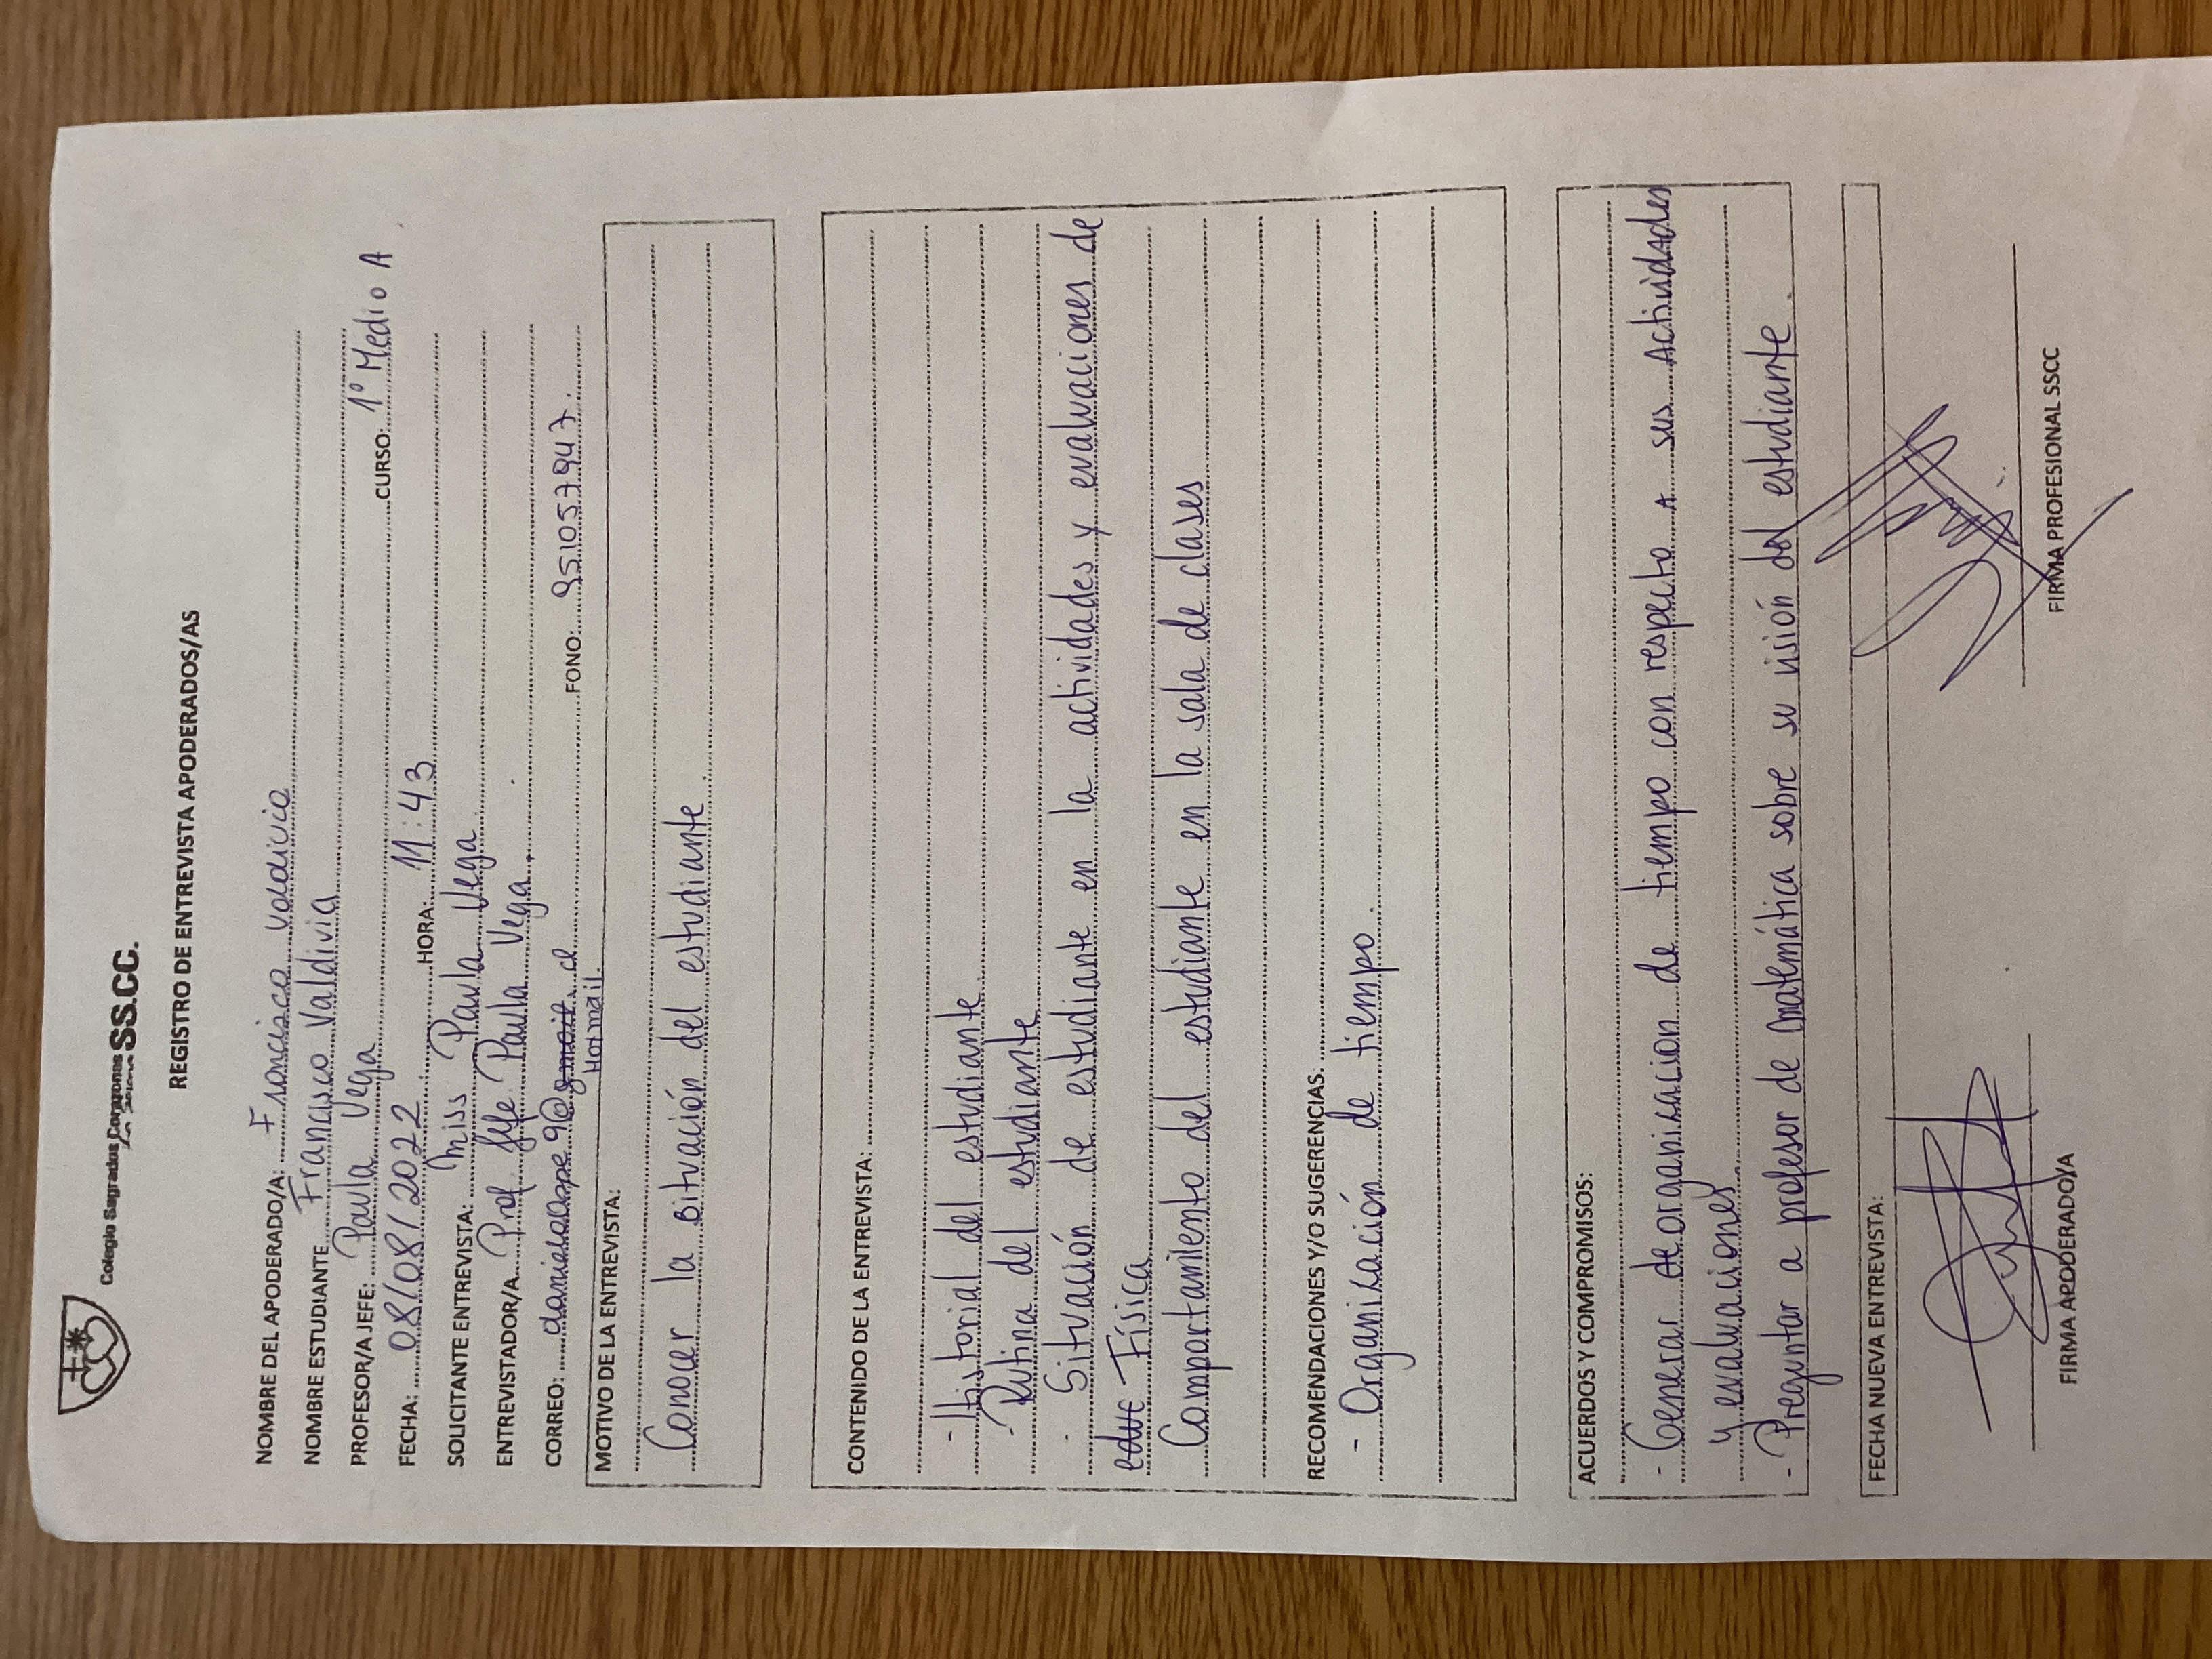 Colegio Sagrados Corazones SS.CC.
REGISTRO DE ENTREVISTA APODERADOS/AS
NOMBRE DEL APODERADO/A: Francisco Valdivia
NOMBRE ESTUDIANTE Francisco Valdivia
PROFESOR/A JEFE: Paula Vega CURSO: 1° Medio A
FECHA: 08/08/2022 HORA: 11:43
SOLICITANTE ENTREVISTA: Miss Paula Vega
ENTREVISTADOR/A Prof Jefe Paula Vega.
CORREO: @gmail.cl FONO: 951057947.
Hotmail.
MOTIVO DE LA ENTREVISTA:
Conocer la situación del estudiante
CONTENIDO DE LA ENTREVISTA:
- Historial del estudiante
- Rutina del estudiante
- Situación de estudiante en la actividades y evaluaciones de
educ Física
Comportamiento del estudiante en la sala de clases
RECOMENDACIONES Y/O SUGERENCIAS.
- Organización de tiempo.
ACUERDOS Y COMPROMISOS:
- Generar de organizacion de tiempo con respecto a sus Actividades
y evaluaciones
- Preguntar a profesor de matemática sobre su visión del estudiante.
FECHA NUEVA ENTREVISTA:
FIRMA APODERADO/A FIRMA PROFESIONAL SSCC